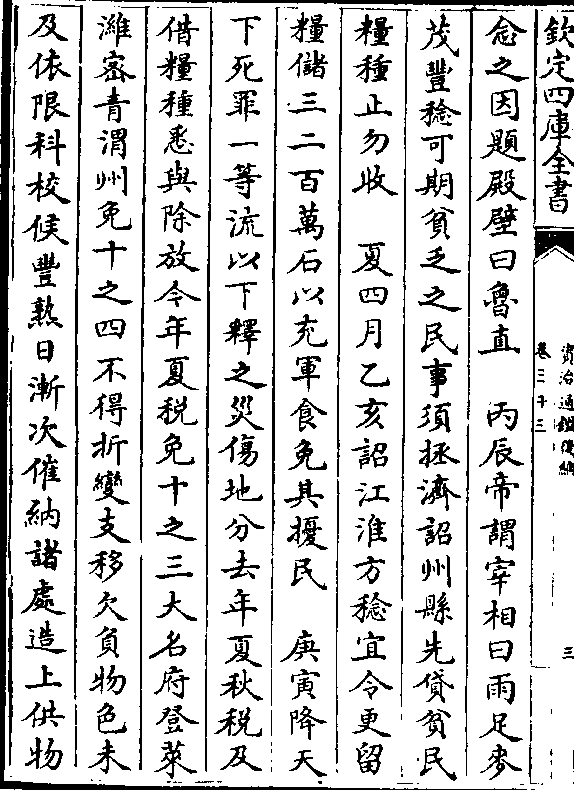 欽定四庫全書
資治通鑑後編
卷三十三
三
念之因題殿壁曰魯直　丙辰帝謂宰相曰雨足麥
茂豐稔可期貧乏之民事須拯濟詔州縣先貸貧民
糧種止勿收　夏四月乙亥詔江淮方稔宜令更留
糧儲三二百萬石以充軍食免其擾民　庚寅降天
下死罪一等流以下釋之災傷地分去年夏秋稅及
借糧種悉與除放今年夏税免十之三大名府登萊
濰密青渭州免十之四不得折變支移欠負物色未
及依限科校候豐熟日漸次催納諸處造上供物